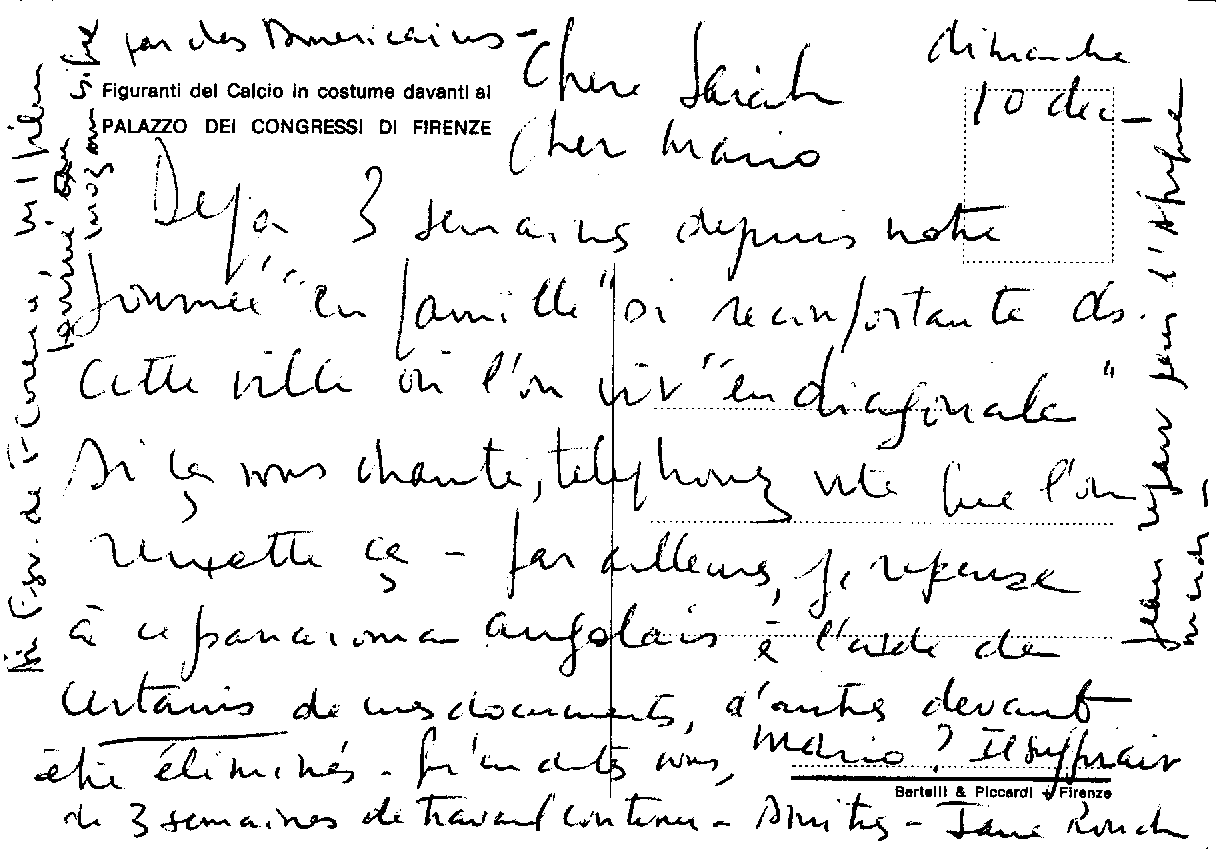 dimanche
10 dec -
Figuranti del Calcio in costume davanti al
PALAZZO DEI CONGRESSI DI FIRENZE
Chere Sarah
Cher Mario
Deja 3 semaines depuis notre
journée "en famille" si reconfortante ds.
cette ville où l'on vit "en diagonale"
Si ça vous chante, téléphonez vite que l'on
remette ça - par ailleurs, je repense
à ce panaroma angolais à l'aide de
certains de mes documents, d'autres devant
être éliminés - Qu'en dites vous, Mario? Il suffirait
de 3 semaines de travail continu - Amitiés - Jane Rouch
Bertelli & Piccardi + Firenze
Jean repart pour l'Afrique
mardi -
un film
terminé
par des Americains -